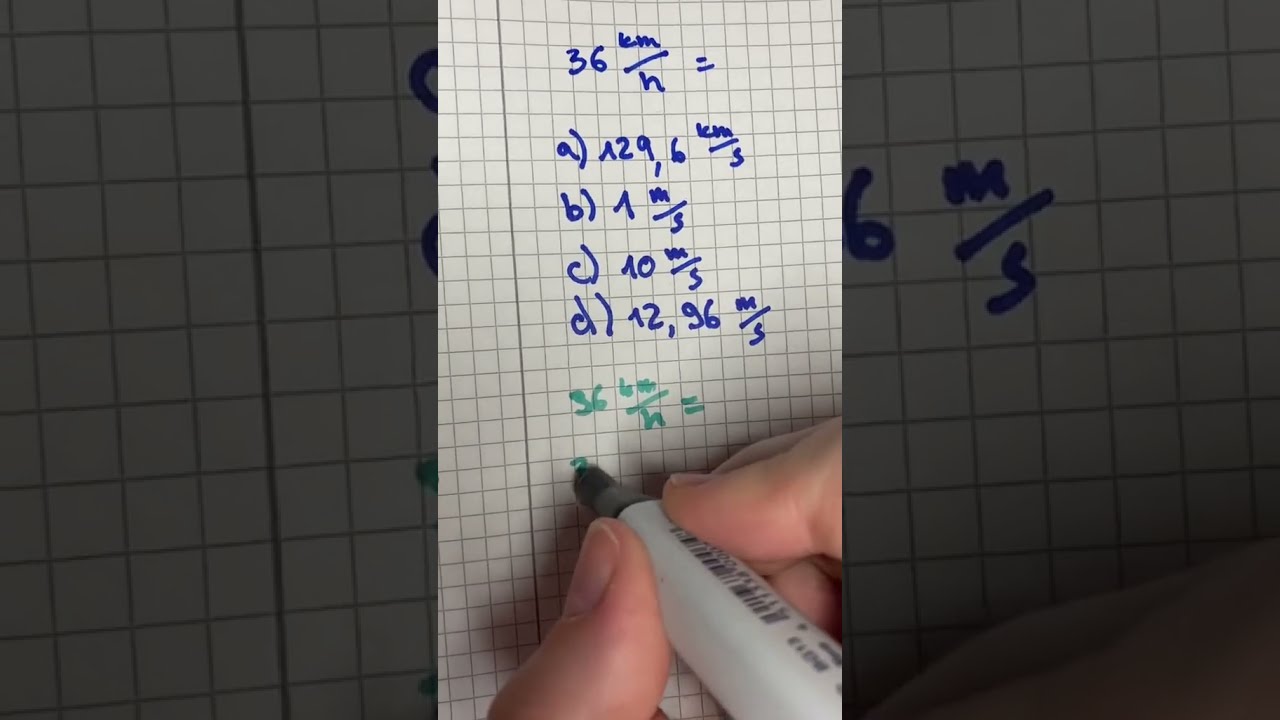 36 km/h =
a) 129,6 km/s
b) 1 m/s
c) 10 m/s
d) 12,96 m/s
36 km/h =